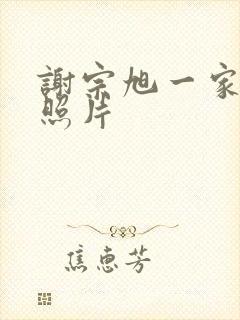 謝宗旭一家
照片
焦惠芳